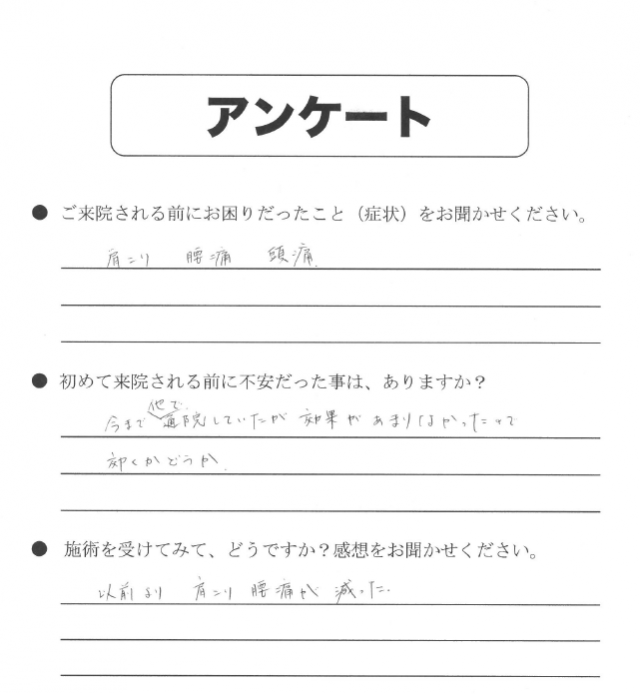 アンケート
● ご来院される前にお困りだったこと（症状）をお聞かせください。
肩こり 腰痛 頭痛.
● 初めて来院される前に不安だった事は、ありますか？
今まで他で通院していたが効果があまりなかったので
効くかどうか.
● 施術を受けてみて、どうですか？感想をお聞かせください。
以前より 肩こり 腰痛が 減った.